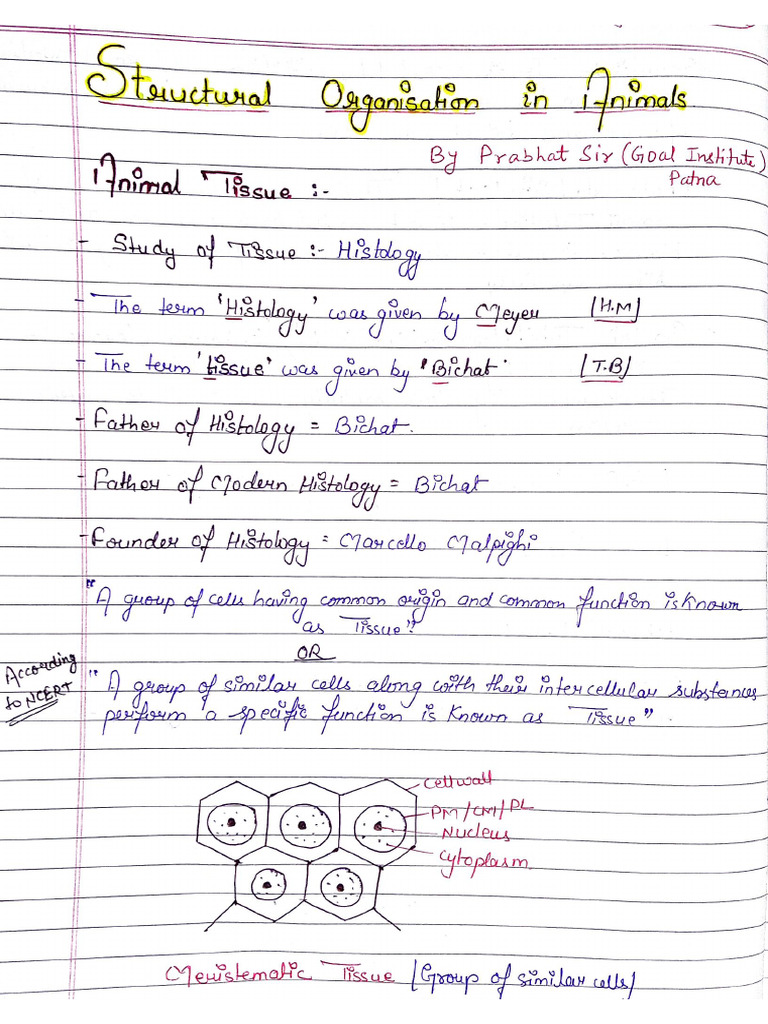 Structural Organisation in Animals
By Prabhat Sir (Goal Institute)
Patna
Animal Tissue :-
- Study of Tissue :- Histology
- The term 'Histology' was given by Meyer [H.M]
- The term 'tissue' was given by 'Bichat' [T.B]
- Father of Histology = Bichat.
- Father of Modern Histology = Bichat
- Founder of Histology = Marcello Malpighi
"A group of cells having common origin and common function is known
as Tissue".
OR
According
to NCERT
"A group of similar cells along with their intercellular substances
perform a specific function is known as Tissue".
Cell wall
PM/CM/PL
Nucleus
Cytoplasm
Meristematic Tissue [Group of similar cells]